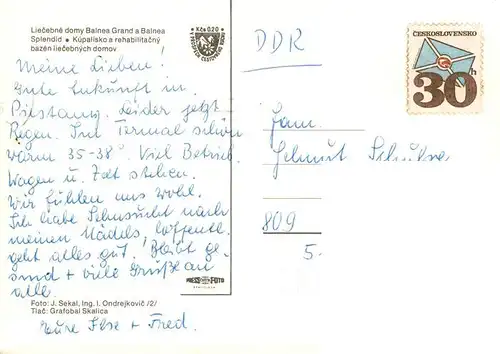 Liečebné domy Balnea Grand a Balnea
Splendid • Kúpalisko a rehabilitačný
bazén liečebných domov
Kčs 0,20
Meine Lieben!
Gute Zukunft in
Pistany. Leider jetzt
Regen. Im Termal schön
warm 35-38°. Viel Betrieb.
Wagen u. Zelt stehen.
Wir fühlen uns wohl.
Ich habe Sehnsucht nach
meinen Mädels, hoffentl.
geht alles gut. Bleibt ge-
sund + viele Grüße an
alle.
PRESSFOTO
Foto: J. Sekal, Ing. I. Ondrejkovič /2/
Tlač: Grafobal Skalica
Eure Ilse + Fred.
DDR
ČESKOSLOVENSKO
30h
Fam.
Helmut
809
5.